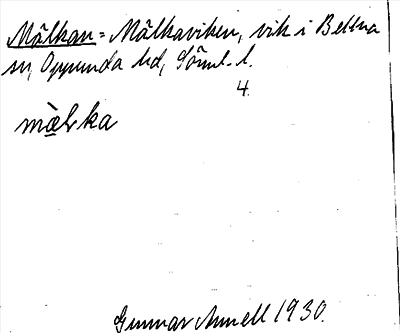 Mälkan = Mälkaviken, vik i Bettna
sn, Oppunda hd, Söml. l.
4.
mälka
Gunnar Annell 1930.